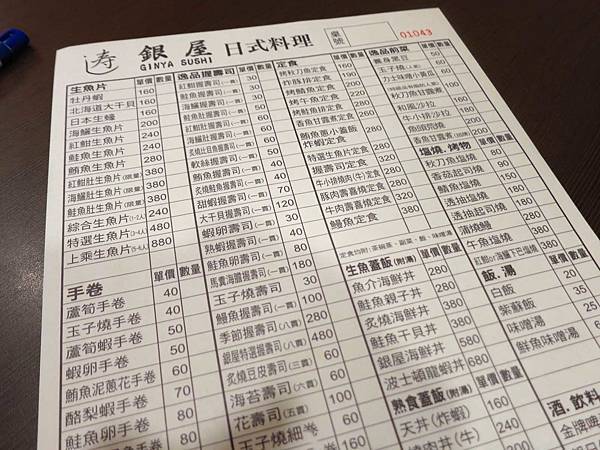 寿 銀屋 日式料理
GINYA SUSHI
桌號
01043
生魚片 單價 數量
牡丹蝦 160
北海道大干貝 160
日本生蠔 160
海鱺生魚片 200
紅魽生魚片 240
鮭魚生魚片 240
鮪魚生魚片 240
紅魽肚生魚片(限量) 380
海鱺肚生魚片(限量) 380
鮭魚肚生魚片(限量) 380
綜合生魚片(1-2人) 240
特選生魚片(3-4人) 480
上乘生魚片(5-6人) 880
手卷 單價 數量
蘆筍手卷 40
玉子燒手卷 40
蘆筍蝦手卷 50
蝦卵手卷 50
鮪魚泥蔥花手卷 60
酪梨蝦手卷 70
鮭魚卵手卷 80
逸品握壽司 單價 數量
紅魽握壽司(一貫) 30
鮭魚握壽司(一貫) 30
海鱺握壽司(一貫)
鮭魚肚握壽司(一貫) 50
紅魽肚握壽司(一貫) 60
海鱺肚握壽司(一貫) 60
炙燒比目魚握壽司(一貫) 50
軟絲握壽司(一貫) 30
鮪魚握壽司(一貫)
炙燒鮭魚握壽司(一貫)
甜蝦握壽司(一貫) 70
大干貝握壽司(一貫) 120
蝦卵壽司(一貫) 30
熟蝦握壽司(一貫) 40
鮭魚卵壽司(一貫) 80
馬糞海膽握壽司(一貫) 180
玉子燒壽司(一貫) 30
鰻魚握壽司(一貫) 100
季節握壽司(八貫) 280
銀屋特選握壽司(八貫) 480
炙燒豆皮壽司(三貫) 60
海苔壽司(六貫) 60
花壽司(五貫) 60
玉子燒細卷
定食 單價 數量
烤秋刀魚定食 160
炸豚排定食 190
烤鯖魚定食 220
烤午魚定食 220
烤鮭魚排定食 280
香魚甘露煮定食 280
鮪魚蔥小蓋飯
炸蝦定食 280
特選生魚片定食 280
握壽司定食 360
牛小排燒肉(牛)定食 280
豚肉壽喜燒定食 280
牛肉壽喜燒定食 320
鰻魚定食 380
定食均附:茶碗蒸、副菜、飯、味噌湯
生魚蓋飯(附湯) 單價 數量
魚介海鮮丼 280
鮭魚親子丼 280
炙燒海鮮丼 380
鮭魚干貝丼 380
銀屋海鮮丼 580
波士頓龍蝦丼 680
熟食蓋飯(附湯) 單價 數量
天丼(炸蝦) 160
燒肉丼(牛) 200
逸品前菜 單價 數量
養身黑豆 50
玉子燒(八塊) 60
力士味噌小黃瓜 60
秋刀魚甘露煮
和風沙拉 160
牛小排沙拉 160
魚頭燜燒 200
香魚甘露煮 200
塩燒、烤物 單價 數量
秋刀魚塩燒 80
香菇起司燒 90
鯖魚塩燒 150
透抽起司燒 180
透抽塩燒 180
蒲燒鰻 380
午魚塩燒 200
飯.湯 單價 數量
白飯 20
紫蘇飯 35
味噌湯 25
鮮魚味噌湯 65
酒.飲料
金牌啤